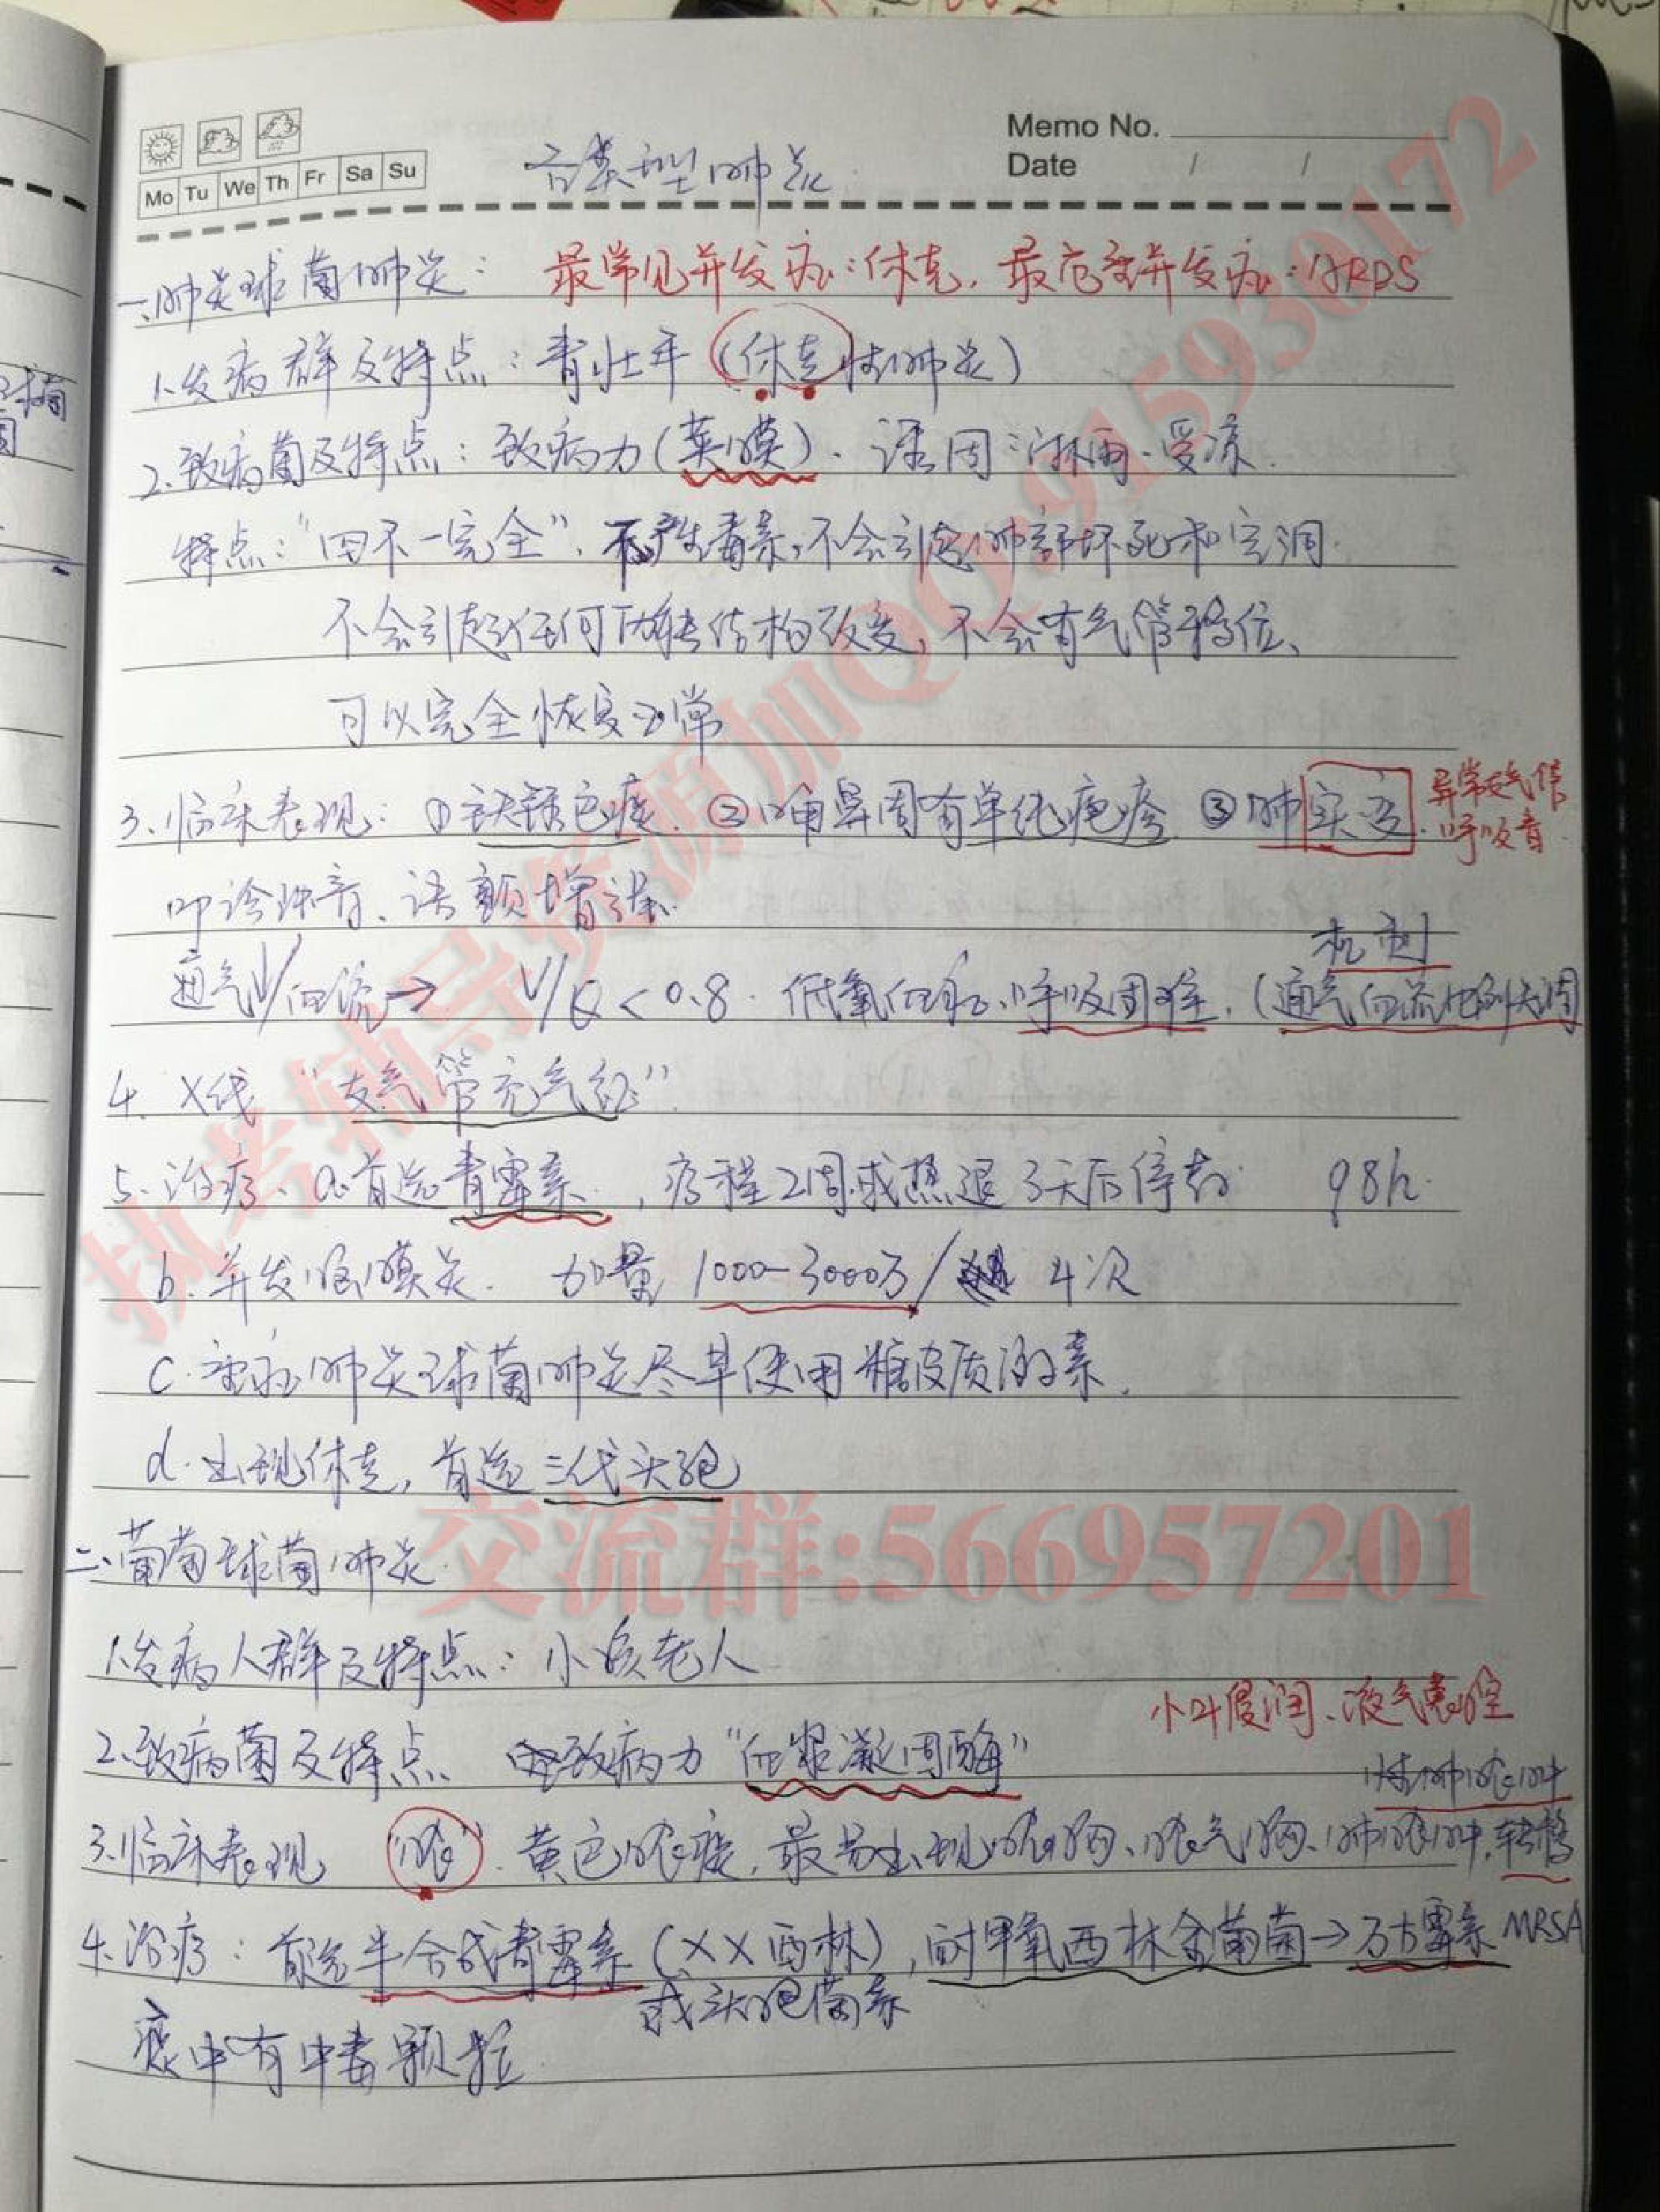 Memo No.
Date / /
Mo Tu We Th Fr Sa Su
各类型肺炎
一、肺炎球菌肺炎: 最常见并发症:休克, 最危重并发症:ARDS
1.发病群及特点:青壮年(休克性肺炎)
2.致病菌及特点:致病力(荚膜). 诱因:淋雨、受凉.
特点:"四不一完全", 不产生毒素,不会引起肺部坏死和空洞.
不会引起任何肺结构改变,不会有气管移位、
可以完全恢复正常
3.临床表现:①铁锈色痰. ②口角鼻周有单纯疱疹 ③肺实变.
异常支气管
呼吸音.
叩诊浊音、语颤增强.
机制
通气↓/血流→ V/Q<0.8. 低氧血症、呼吸困难.(通气血流比例失调
4. X线 "支气管充气征"
5.治疗、a.首选青霉素,疗程2周或热退3天后停药 98h.
b.并发脑膜炎. 加量1000-3000万/ 4次
c.重症肺炎球菌肺炎尽早使用糖皮质激素.
d.出现休克,首选三代头孢
二、葡萄球菌肺炎
1.发病人群及特点:小孩老人
小叶浸润、液气囊腔
2.致病菌及特点 致病力"血浆凝固酶"
性肺脓肿
3.临床表现 "脓". 黄色脓痰,最易出现脓胸、脓气胸、肺脓肿,转移
4.治疗:首选半合成青霉素(XX西林),耐甲氧西林金葡菌→万古霉素 MRSA
或头孢菌素
痰中有中毒颗粒
执考辅导资源加QQ:915930172
交流群:566957201